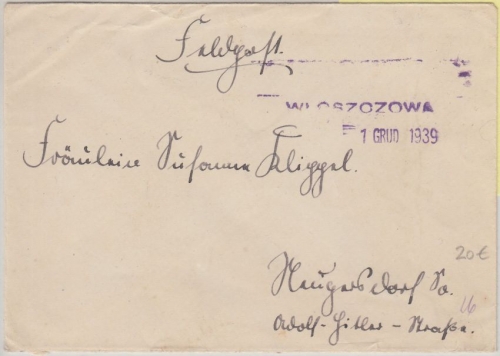 Feldpost.
WŁOSZCZOWA
1 GRUD 1939
Fräulein Susanne Klippel.
Neugersdorf Sa.
Adolf-Hitler-Straße.
20€
16